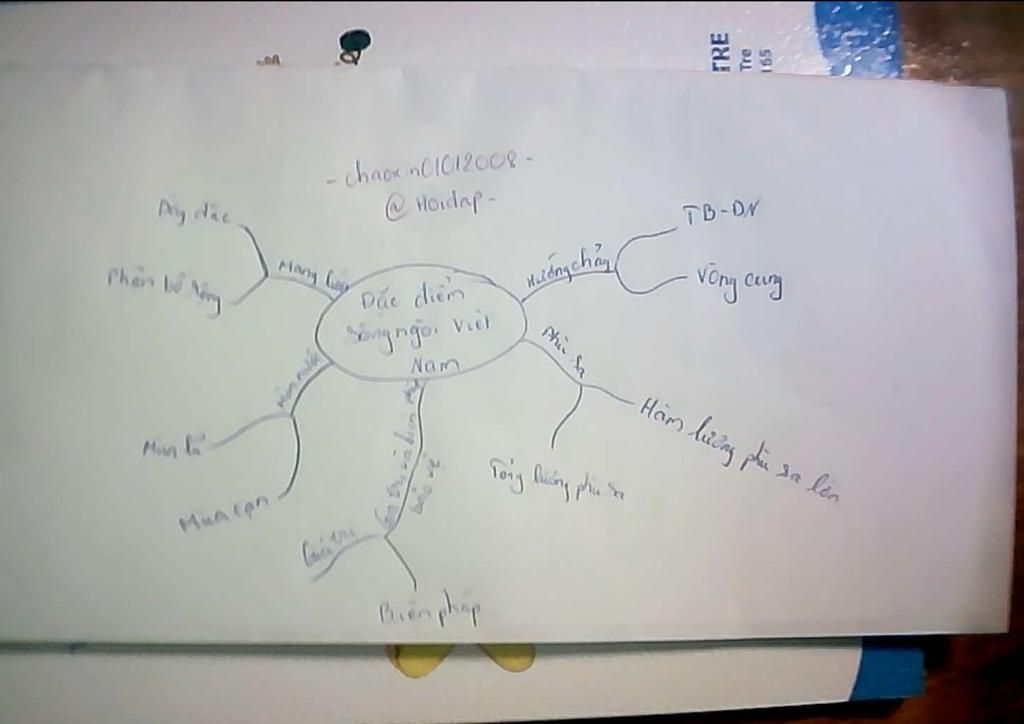 TRE
Tre
165
- chaoxin01012008 -
@Hoidap -
Đặc điểm
sông ngòi Việt
Nam
Hướng chảy
TB-ĐN
Vòng cung
Phù sa
Hàm lượng phù sa lớn
Tổng lượng phù sa
Giá trị
Biện pháp
bảo vệ
Mùa nước
Mùa lũ
Mùa cạn
Mạng lưới
Dày đặc
Phân bố rộng